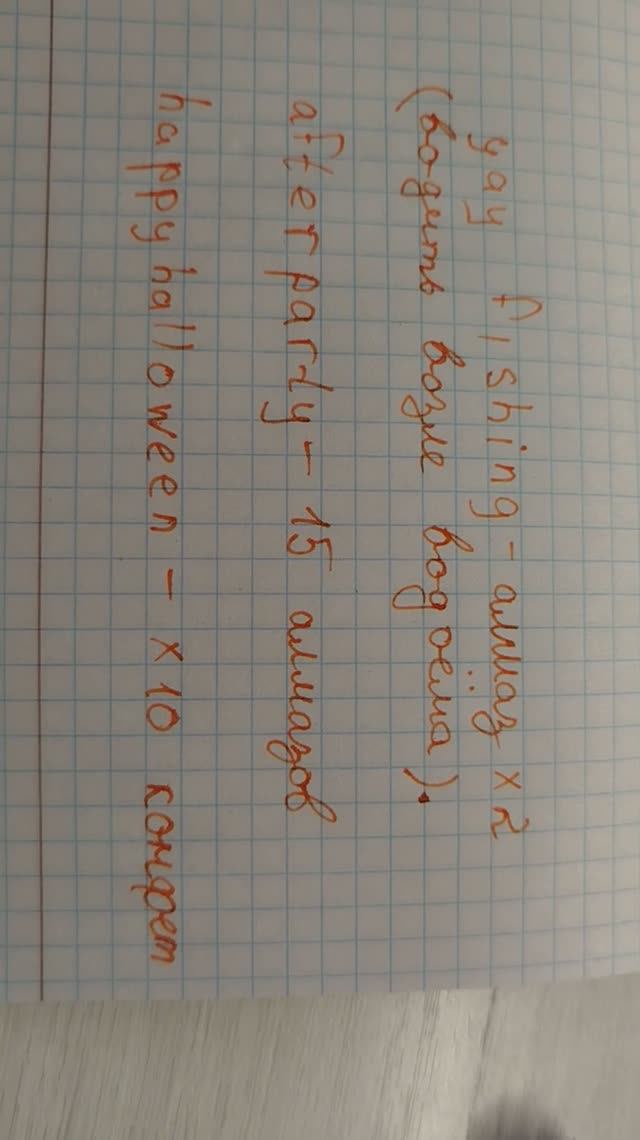 yay fishing - алмаз x2
(водить возле водоёма).
after party - 15 алмазов
happyhalloween - x10 конфет